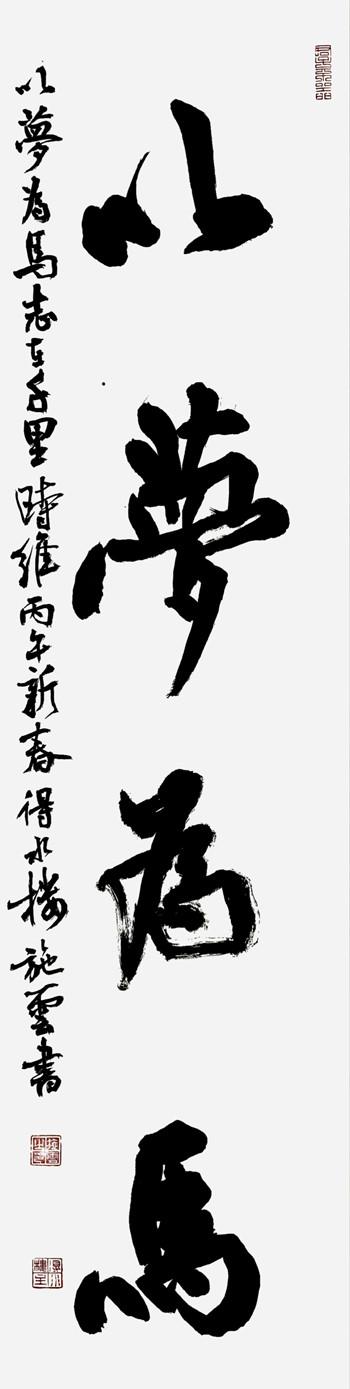 以夢為馬
以夢為馬志在千里時維丙午新春得水楼施雲書